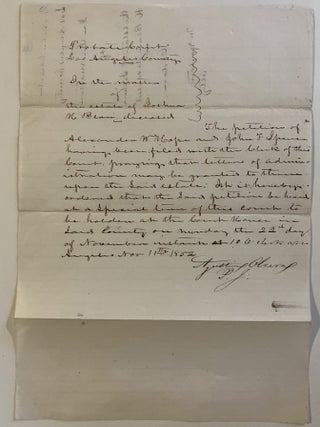 Probate Court
Los Angeles County
In the matter
the estate of Joshua
H Bean deceased
The petition of
Alexander W Hope and John F
having been filed with the clerk of this
Court, praying that letters of admin-
istration may be granted to them
upon the said estate. It is hereby
ordered that the said petition be heard
at a special term of this court to
be holden at the Court House in
said County on monday the 22d day
of November instant at 10 O clock a m
Angeles Nov 11th 1852
Agustin Olvera
P. J.